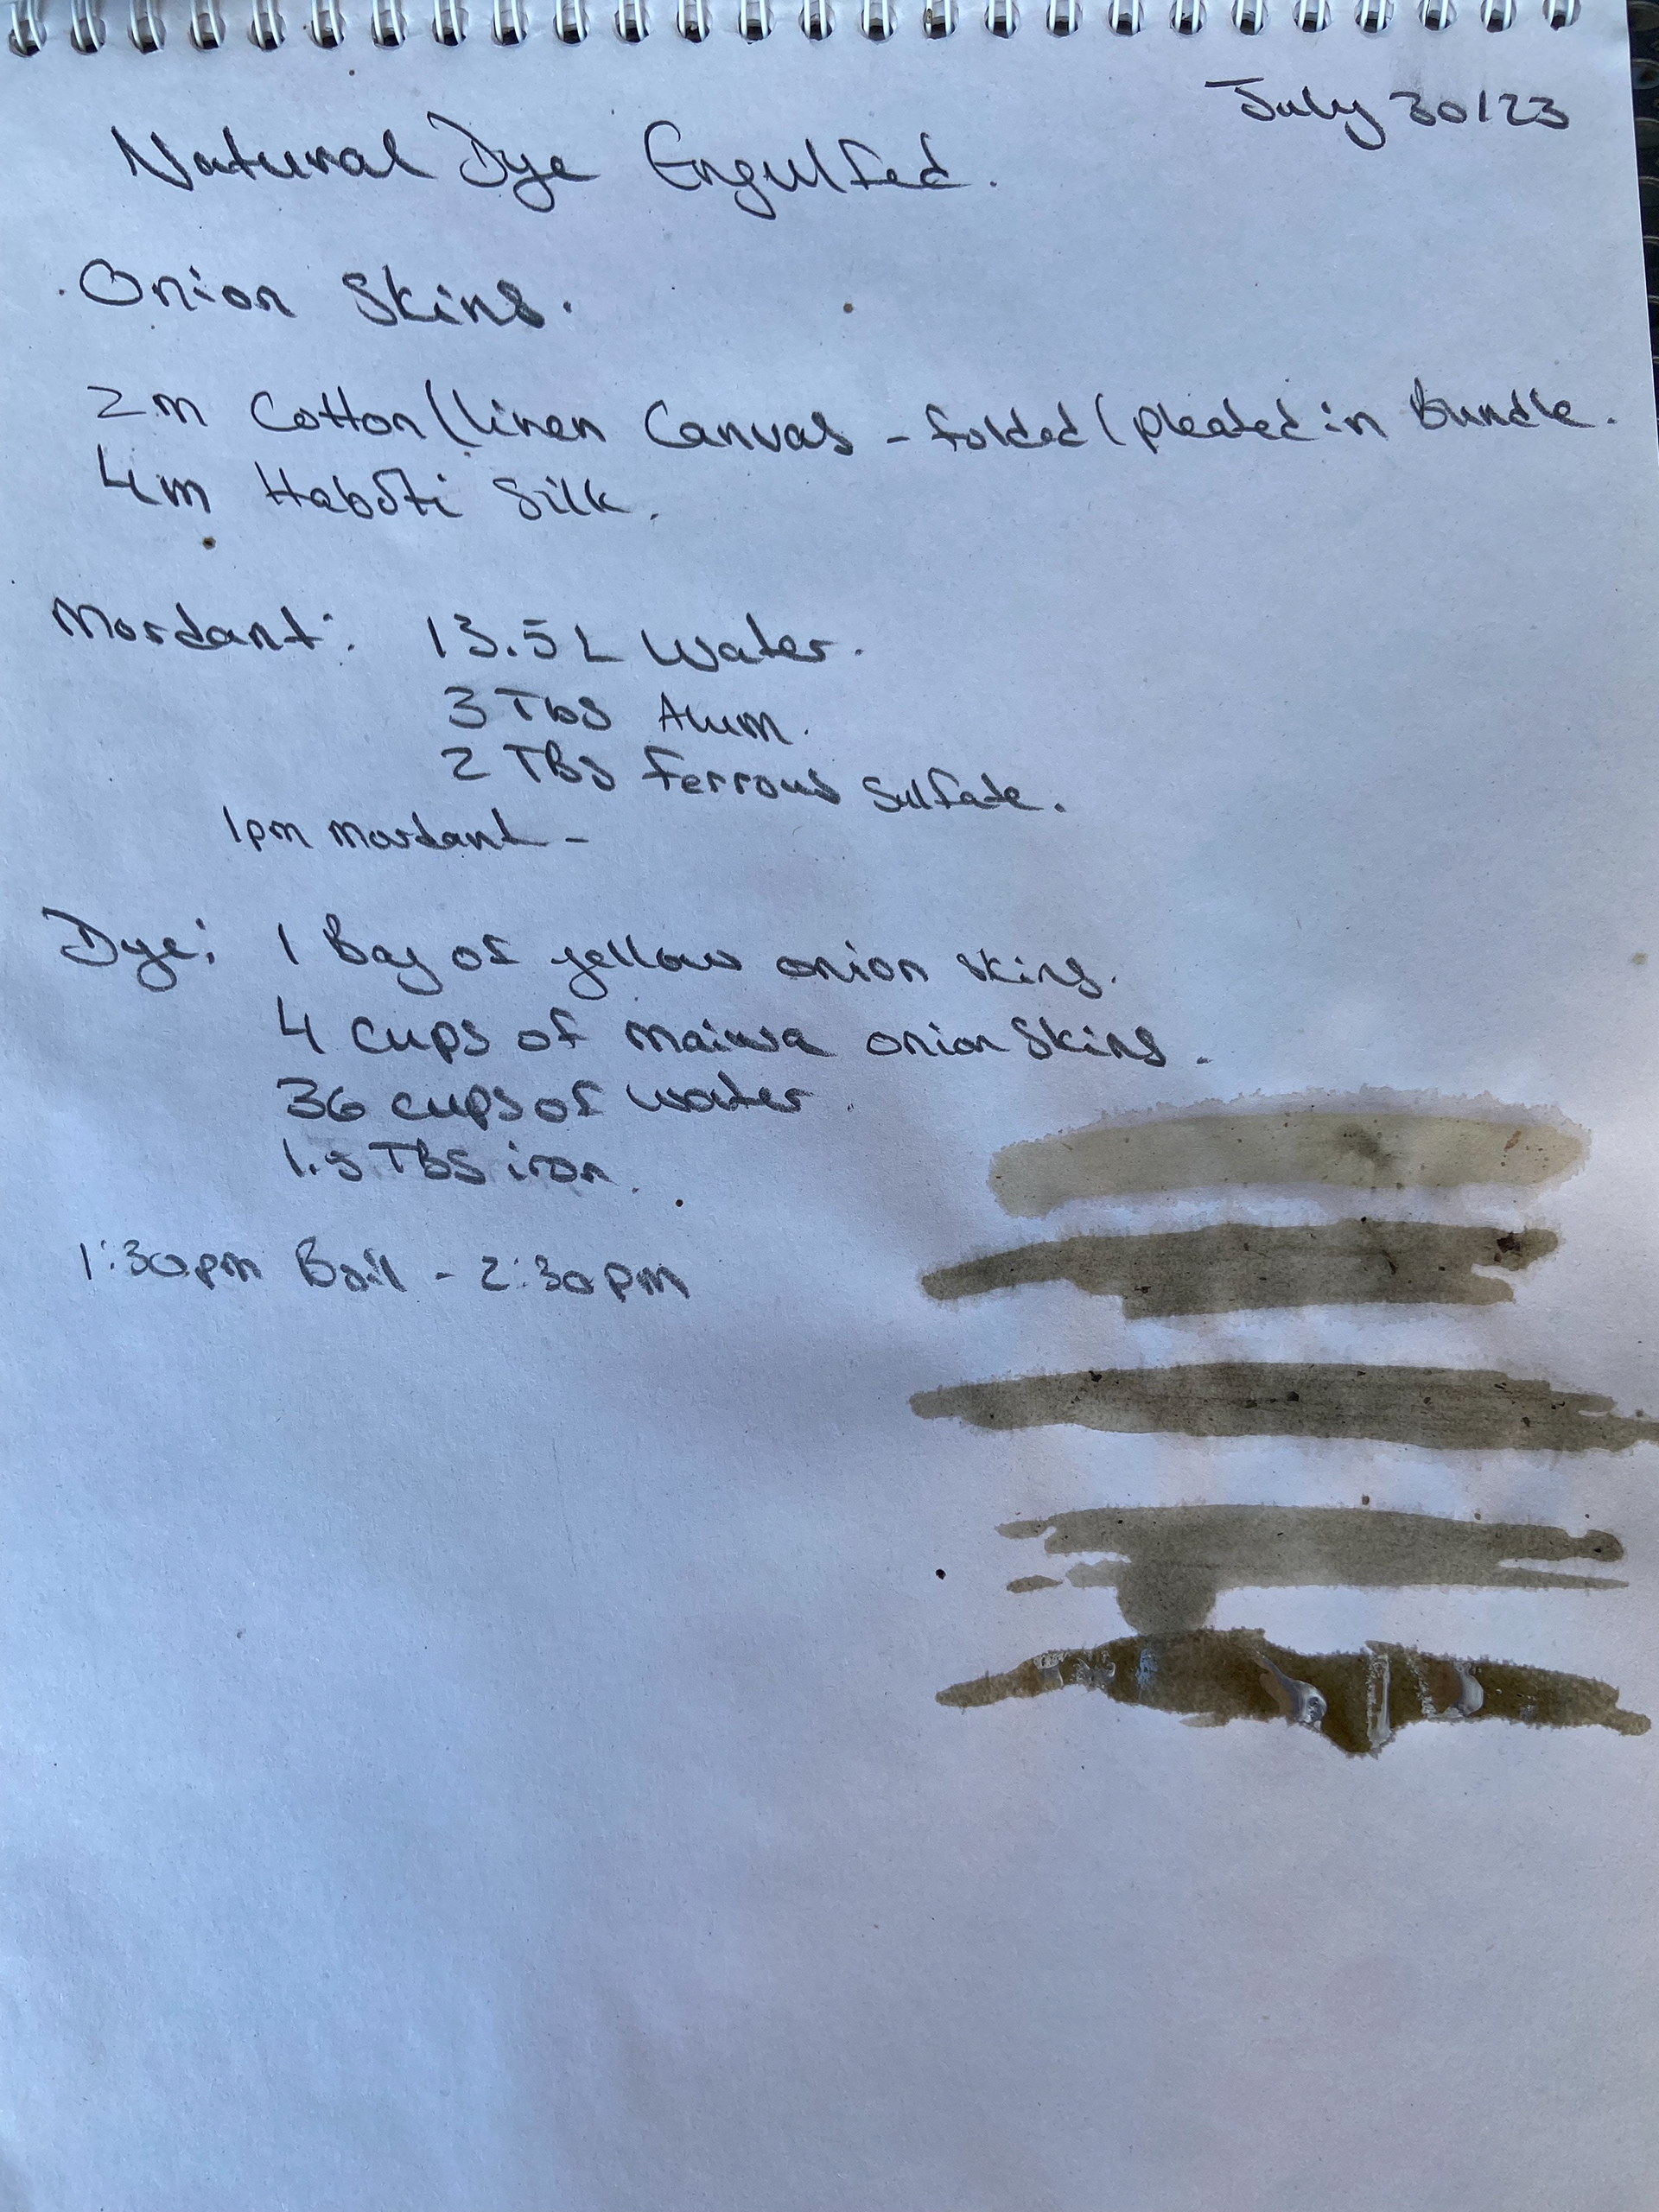 July 30/23
Natural Dye Engulfed.
. Onion Skins.
2m Cotton/linen Canvas - folded/pleated in Bundle.
4m Haboti Silk.
Mordant: 13.5 L Water.
3 Tbs Alum.
2 TBS ferrous sulfate.
1pm mordant -
Dye: 1 Bag of yellow onion skins.
4 cups of maiwa onion skins.
36 cups of water.
1.5 TBS iron.
1:30pm Boil - 2:30pm